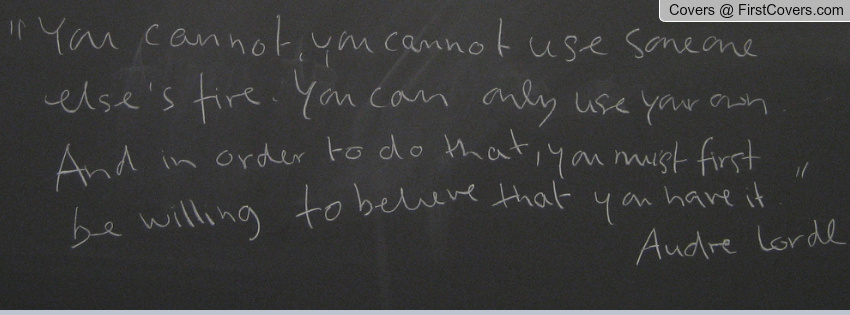 Covers @ FirstCovers.com
"You cannot, you cannot use someone
else's fire. You can only use your own.
And in order to do that, you must first
be willing to believe that you have it."
Audre Lorde